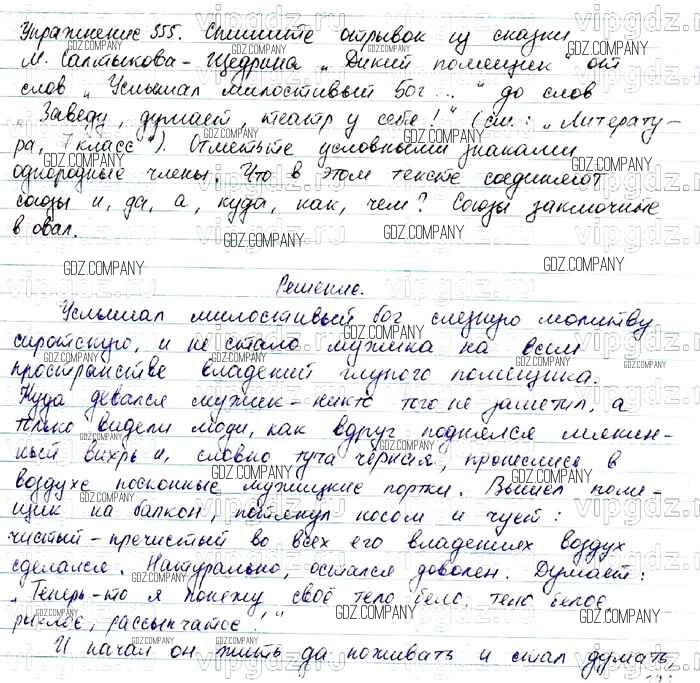 Упражнение 355. Спишите отрывок из сказки
М. Салтыкова-Щедрина „Дикий помещик" от
слов „Услышал милостивый бог..." до слов
„Заведу, думает, театр у себя!" (см.: „Литерату-
ра, 7 класс"). Отметьте условными знаками
однородные члены. Что в этом тексте соединяют
союзы и, да, а, куда, как, чем? Союзы заключите
в овал.
Решение.
Услышал милостивый бог слезную молитву
сиротскую, и не стало мужика на всем
пространстве владений глупого помещика.
Куда девался мужик - никто того не заметил, а
только видели люди, как вдруг поднялся мякин-
ный вихрь и, словно туча чёрная, пронеслись в
воздухе посконные мужицкие портки. Вышел поме-
щик на балкон, потянул носом и чует:
чистый-пречистый во всех его владениях воздух
сделался. Натурально, остался доволен. Думает:
„Теперь-то я понежу своё тело бело, тело белое,
рыхлое, рассыпчатое!"
И начал он жить да поживать и стал думать,